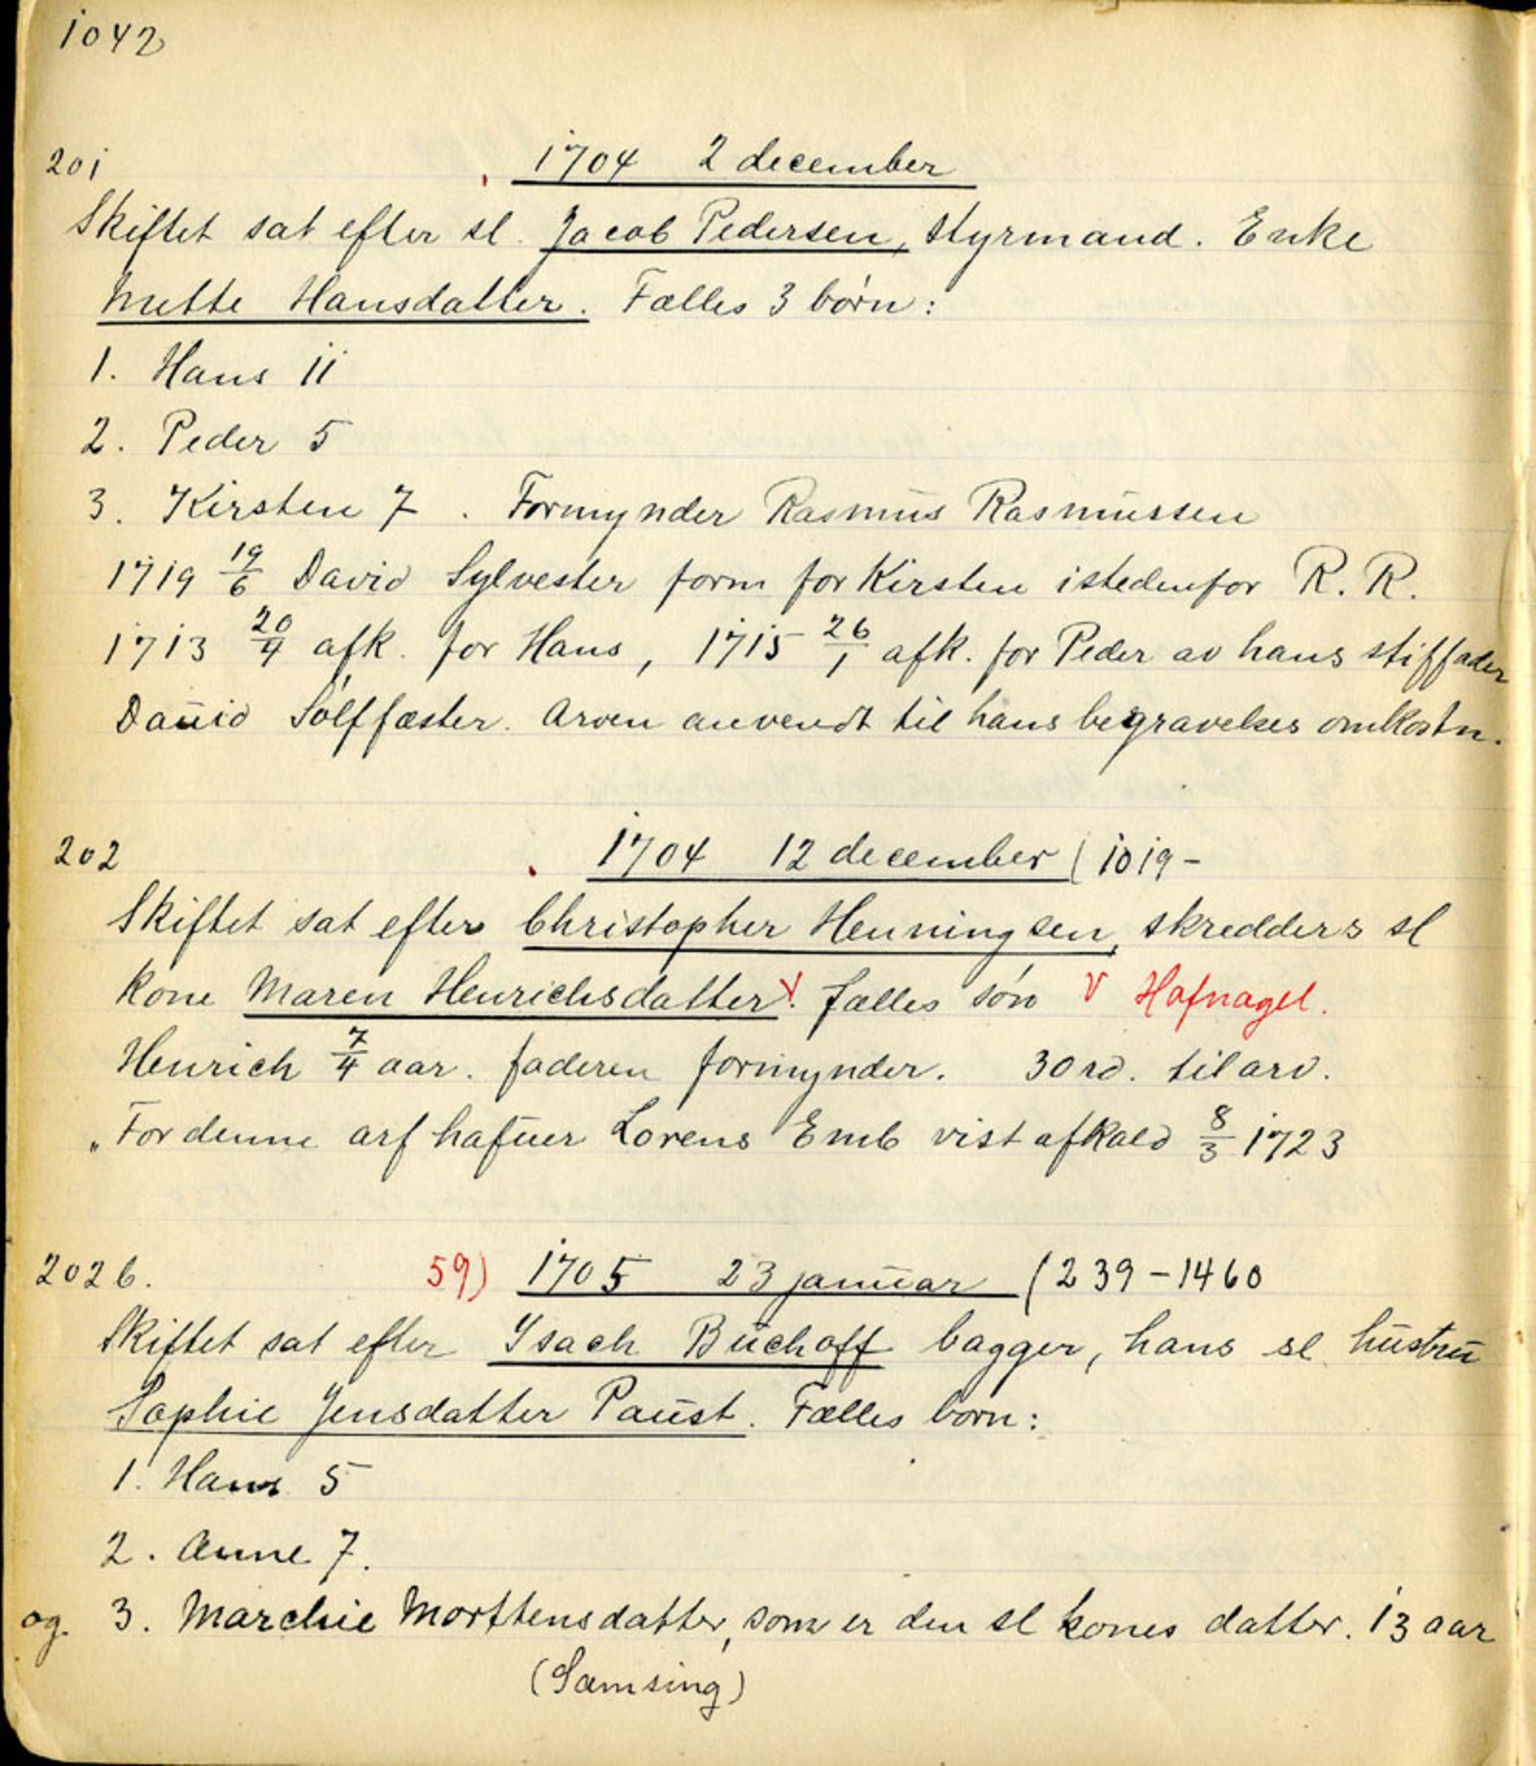 1042
201 1704 2 december
Skiftet sat efter sl. Jacob Pedersen, styrmand. Enke
Mette Hansdatter. Fælles 3 børn:
1. Hans 11
2. Peder 5
3. Kirsten 7. Formynder Rasmus Rasmussen
1719 19/6 David Sylvester form for Kirsten istedenfor R. R.
1713 20/4 afk. for Hans, 1715 26/1 afk. for Peder av hans stiffader
David Sølffæster. Arven anvendt til hans begravelses omkostn.
202 1704 12 december (1019-
Skiftet sat efter Christopher Henningsen, skredders sl
kone Maren Henrichsdatter V. fælles søn V Hafnagel.
Henrich 7/4 aar. faderen formynder. 30 rd. til arv.
„For denne arf hafuer Lorens Emb vist afkald 8/3 1723
202b. 59) 1705 23 januar (239-1460
Skiftet sat efter Ysach Buchoff bagger, hans sl. hustru
Sophie Jensdatter Paust. Fælles børn:
1. Hans 5
2. Anne 7.
og 3. Marchie Morttensdatter, som er den sl kones datter. 13 aar
(Samsing)